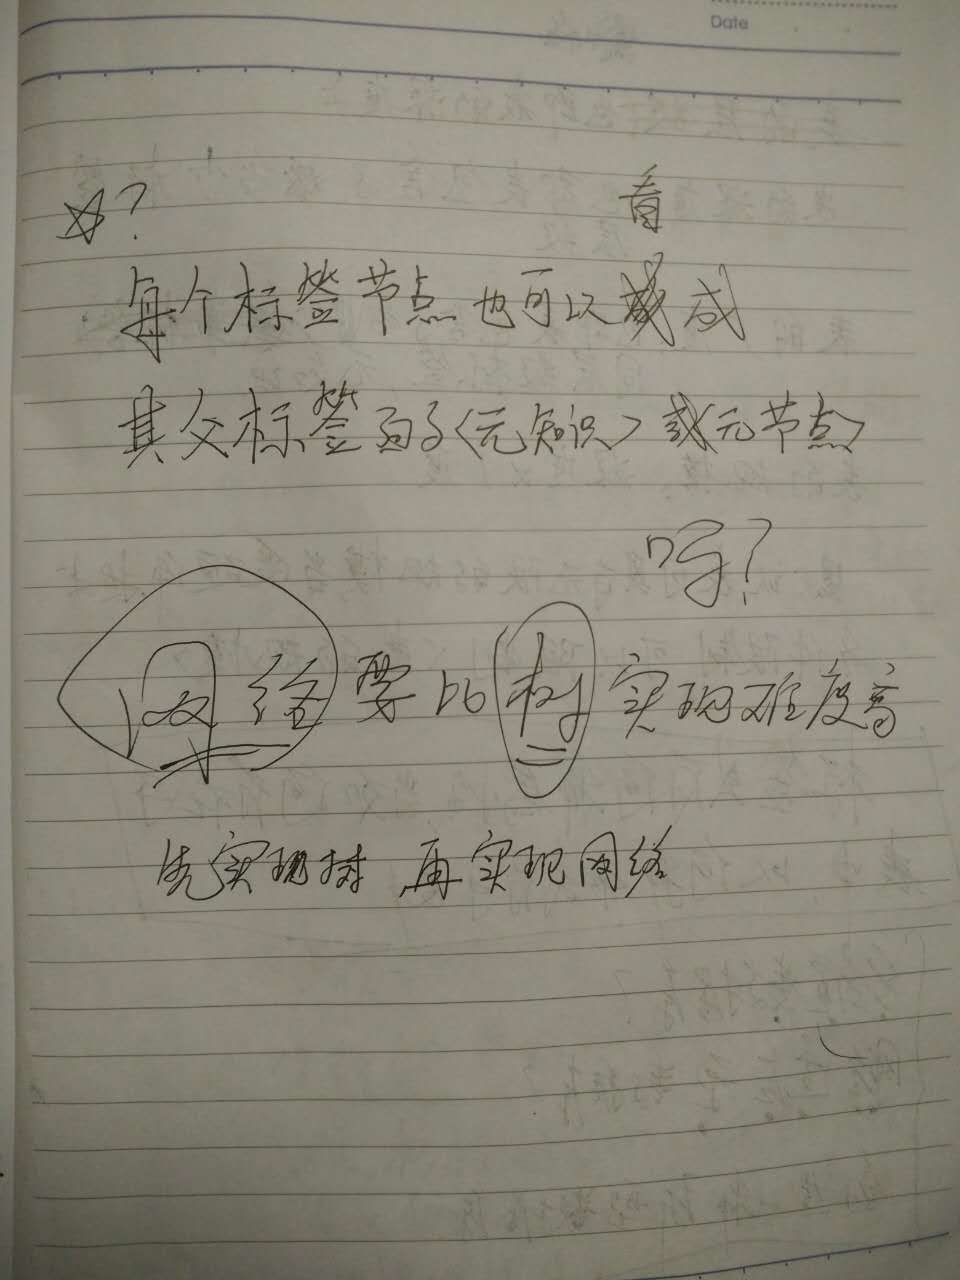 Date
☆?
看
每个标签节点也可以成
其父标签的子〈元知识〉或〈元节点〉
吗?
网络要比树实现难度高
先实现树 再实现网络